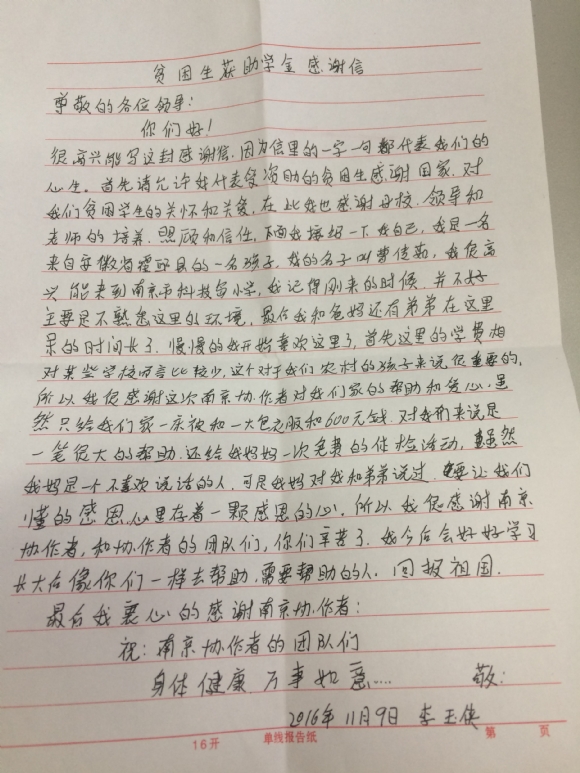 贫困生获助学金感谢信
尊敬的各位领导:
你们好!
很高兴能写这封感谢信,因为信里的一字一句都代表我们的
心生。首先请允许我代表受资助的贫困生感谢国家,对
我们贫困学生的关怀和关爱,在此我也感谢母校,领导和
老师的培养,照顾和信任,下面我接绍一下我自己,我是一名
来自安徽省霍邱县的一名孩子,我的名子叫曹传茹,我很高
兴能来到南京市科技苗小学,我记得刚来的时候,并不好
主要是不熟悉这里的环境,最后我和爸妈还有弟弟在这里
呆的时间长了,慢慢的我开始喜欢这里了,首先这里的学费相
对某些学校而言比较少,这个对于我们农村的孩子来说很重要的,
所以我很感谢这次南京协作者对我们家的帮助和爱心,虽
然只给我们家一床被和一大包衣服和600元钱,对我们来说是
一笔很大的帮助,还给我妈妈一次免费的体检活动,虽然
我妈是一个不喜欢说话的人,可是我妈对我和弟弟说过,要让我们
懂的感恩,心里存着一颗感恩的心,所以我很感谢南京
协作者,和协作者的团队们,你们辛苦了,我今后会好好学习
长大后像你们一样去帮助,需要帮助的人,回报祖国.
最后我衷心的感谢南京协作者:
祝:南京协作者的团队们
身体健康 万事如意.... 敬:
2016年11月9日 李玉侠
16开 单线报告纸 第 页